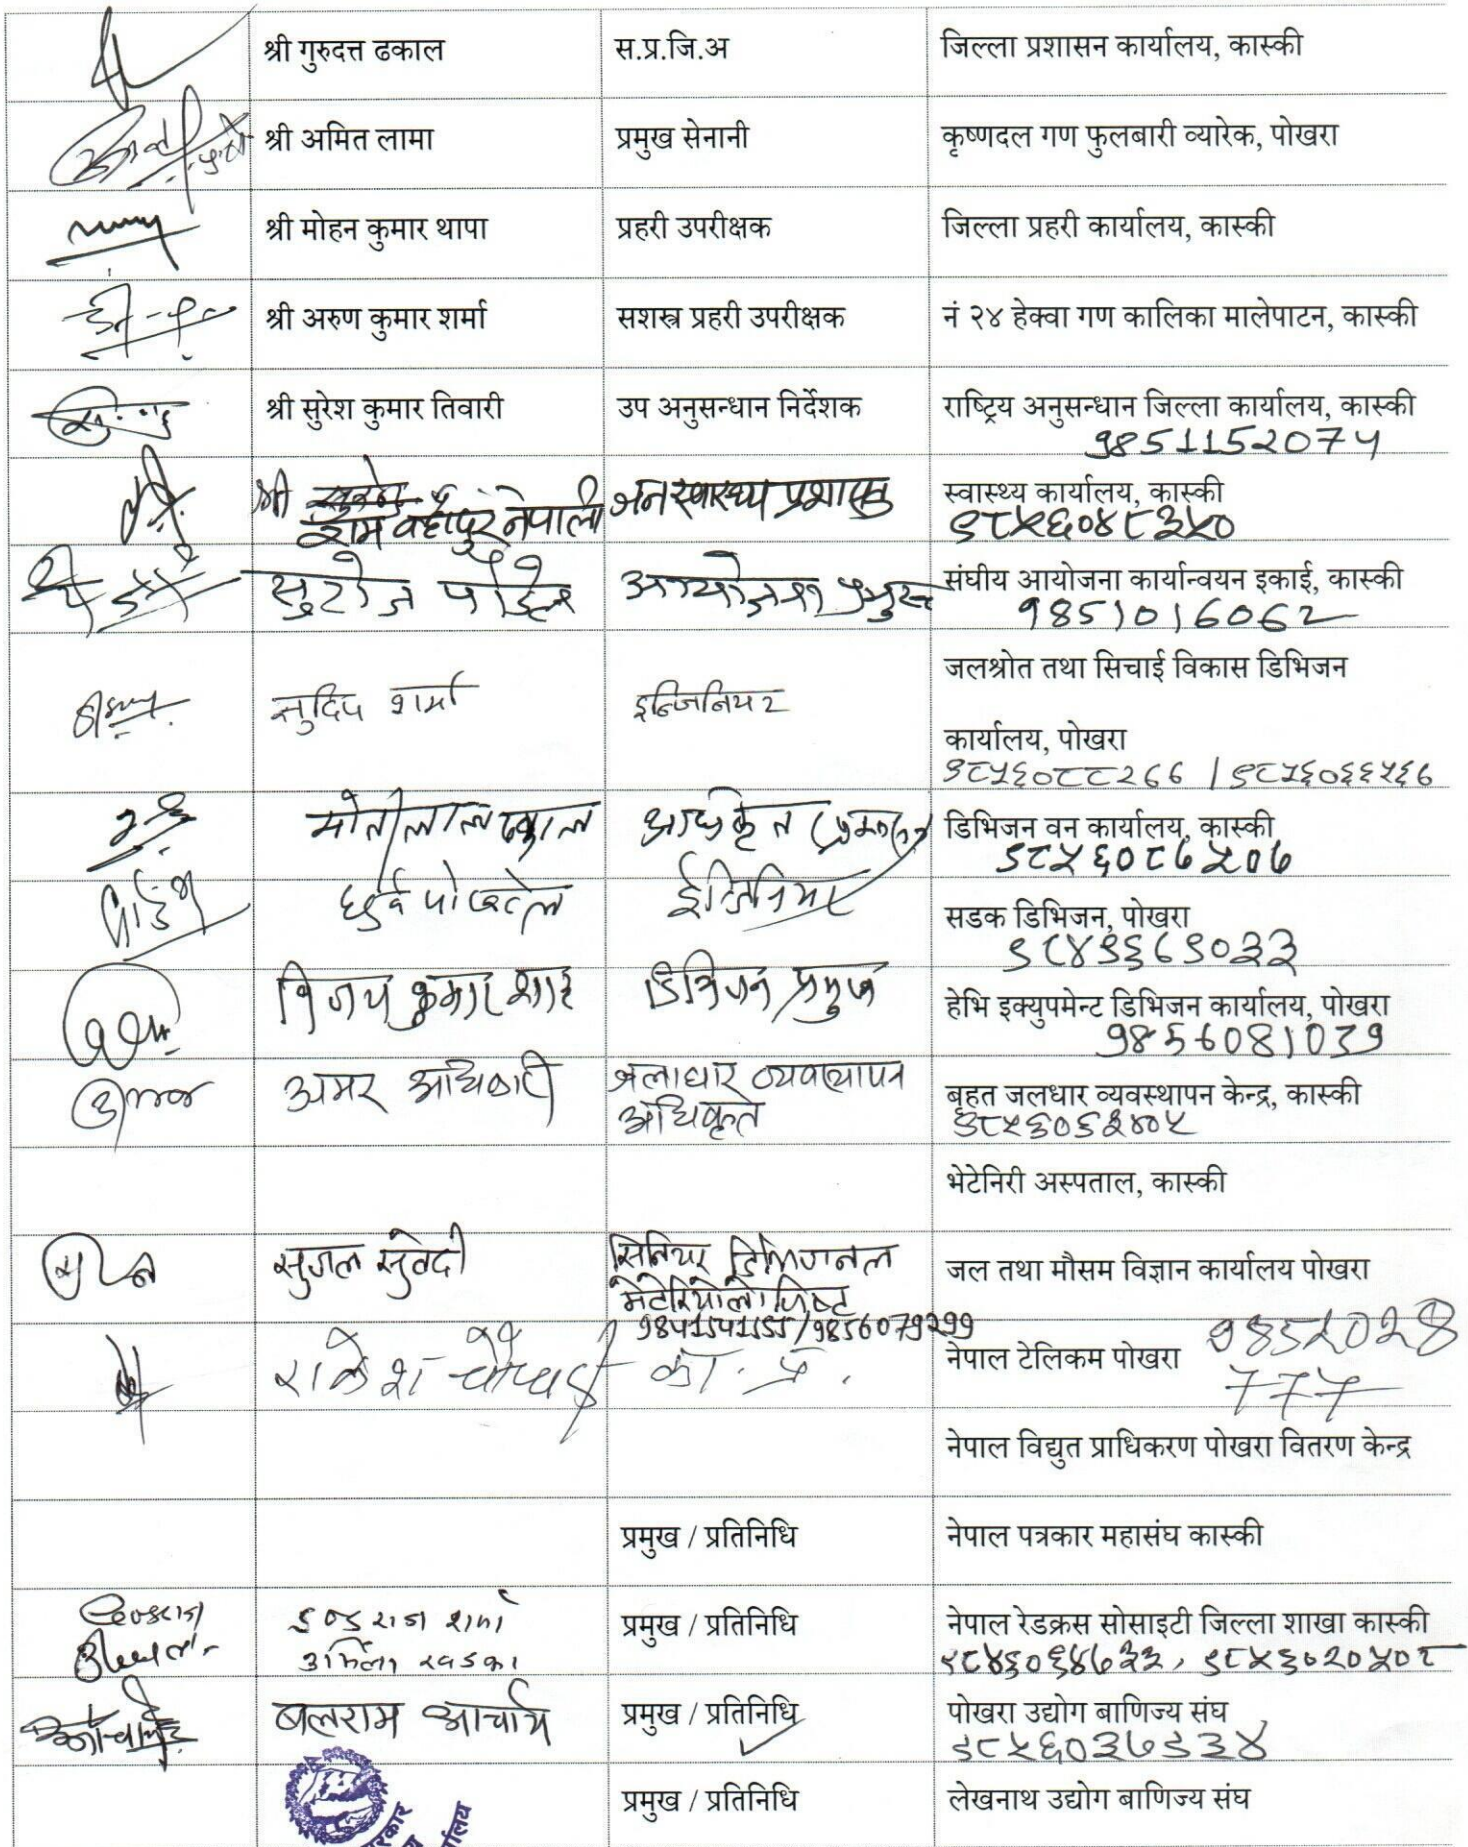 श्री गुरुदत्त ढकाल स.प्र.जि.अ जिल्ला प्रशासन कार्यालय, कास्की
श्री अमित लामा प्रमुख सेनानी कृष्णदल गण फुलबारी ब्यारेक, पोखरा
श्री मोहन कुमार थापा प्रहरी उपरीक्षक जिल्ला प्रहरी कार्यालय, कास्की
श्री अरुण कुमार शर्मा सशस्त्र प्रहरी उपरीक्षक नं २४ हेक्वा गण कालिका मालेपाटन, कास्की
श्री सुरेश कुमार तिवारी उप अनुसन्धान निर्देशक राष्ट्रिय अनुसन्धान जिल्ला कार्यालय, कास्की
श्री राम बहादुर नेपाली जनस्वास्थ्य प्रशासक स्वास्थ्य कार्यालय, कास्की
९८५६०४८३५०
सुरोज पौडेल आयोजना प्रमुख संघीय आयोजना कार्यान्वयन इकाई, कास्की
9851016062
जलश्रोत तथा सिचाई विकास डिभिजन
सुदिप शर्मा इन्जिनियर
कार्यालय, पोखरा
९८५६०८८२६६ / ९८५६०६६५६६
मोतीलाल ढकाल अधिकृत डिभिजन वन कार्यालय, कास्की
९८५६०८७५०७
पोखरेल ईन्जिनियर सडक डिभिजन, पोखरा
९८४९३६९०३३
विजय कुमार साह डिभिजन प्रमुख हेभि इक्युपमेन्ट डिभिजन कार्यालय, पोखरा
9856081039
अमर अधिकारी जलाधार व्यवस्थापन बृहत जलधार व्यवस्थापन केन्द्र, कास्की
अधिकृत
भेटेनिरी अस्पताल, कास्की
सुजल सुवेदी सिनियर डिभिजनल जल तथा मौसम विज्ञान कार्यालय पोखरा
मेटेरियोलोजिष्ट
9856079299
राकेश चौधरी का. प्र. नेपाल टेलिकम पोखरा 9852028
777
नेपाल विद्युत प्राधिकरण पोखरा वितरण केन्द्र
प्रमुख / प्रतिनिधि नेपाल पत्रकार महासंघ कास्की
राज शर्मा प्रमुख / प्रतिनिधि नेपाल रेडक्रस सोसाइटी जिल्ला शाखा कास्की
उर्मिला खडका ९८५६०२०५०८
बलराम आचार्य प्रमुख / प्रतिनिधि पोखरा उद्योग बाणिज्य संघ
९८५६०३७९३४
प्रमुख / प्रतिनिधि लेखनाथ उद्योग बाणिज्य संघ